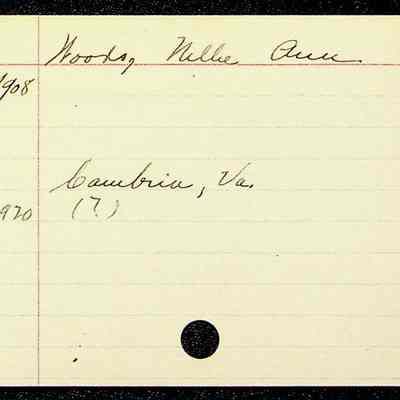 Woods, Nellie Ann
1908
Cambria, Va.
1920 (?)